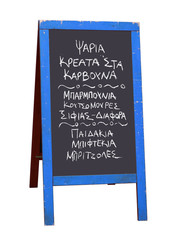 ΨΑΡΙΑ
ΚΡΕΑΤΑ ΣΤΑ
ΚΑΡΒΟΥΝΑ
ΜΠΑΡΜΠΟΥΝΙΑ
ΚΟΥΤΣΟΜΟΥΡΕΣ
ΞΙΦΙΑΣ-ΔΙΑΦΟΡΑ
ΠΑΙΔΑΚΙΑ
ΜΠΙΦΤΕΚΙΑ
ΜΠΡΙΤΖΟΛΕΣ